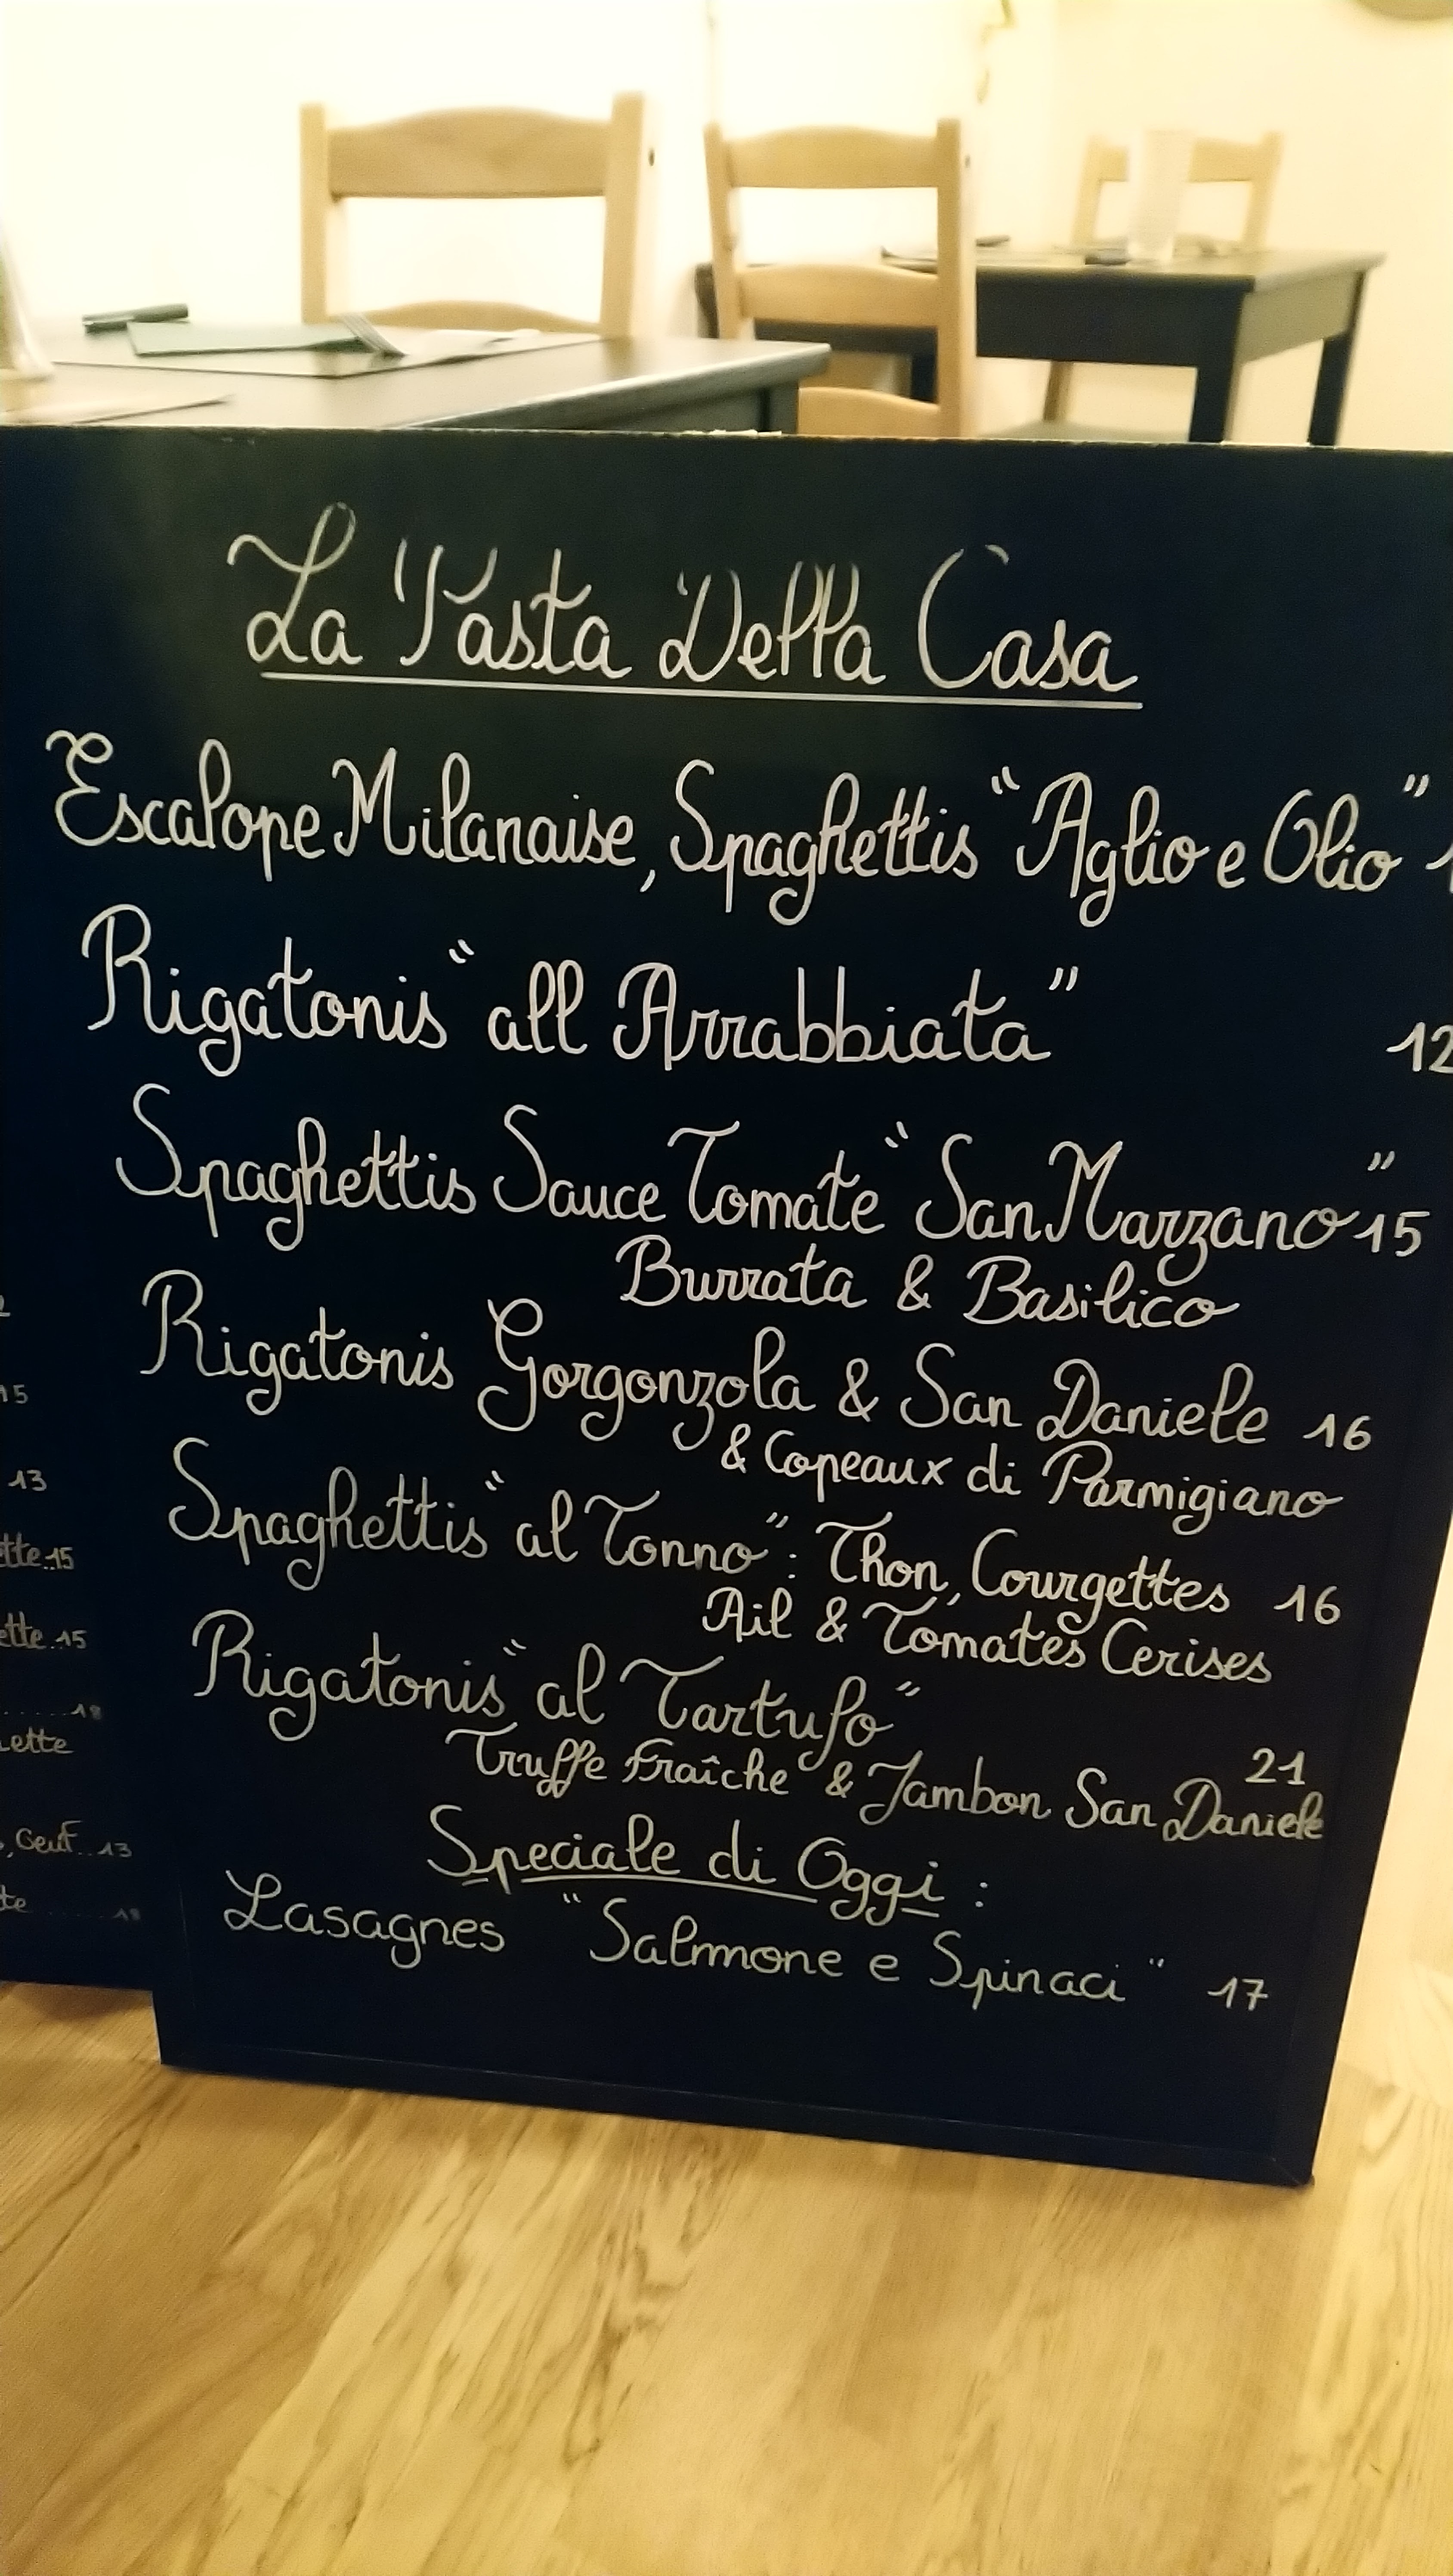 La Pasta Della Casa
Escalope Milanaise, Spaghettis "Aglio e Olio"
Rigatonis "all Arrabbiata" 12
Spaghettis Sauce Tomate "San Marzano" 15
Burrata & Basilico
Rigatonis Gorgonzola & San Daniele 16
& Copeaux di Parmigiano
Spaghettis "al Tonno": Thon, Courgettes 16
Ail & Tomates Cerises
Rigatonis "al Tartufo"
21
Truffe Fraîche & Jambon San Daniele
Speciale di Oggi :
Lasagnes "Salmone e Spinaci" 17
15
13
15
15
18
13
18